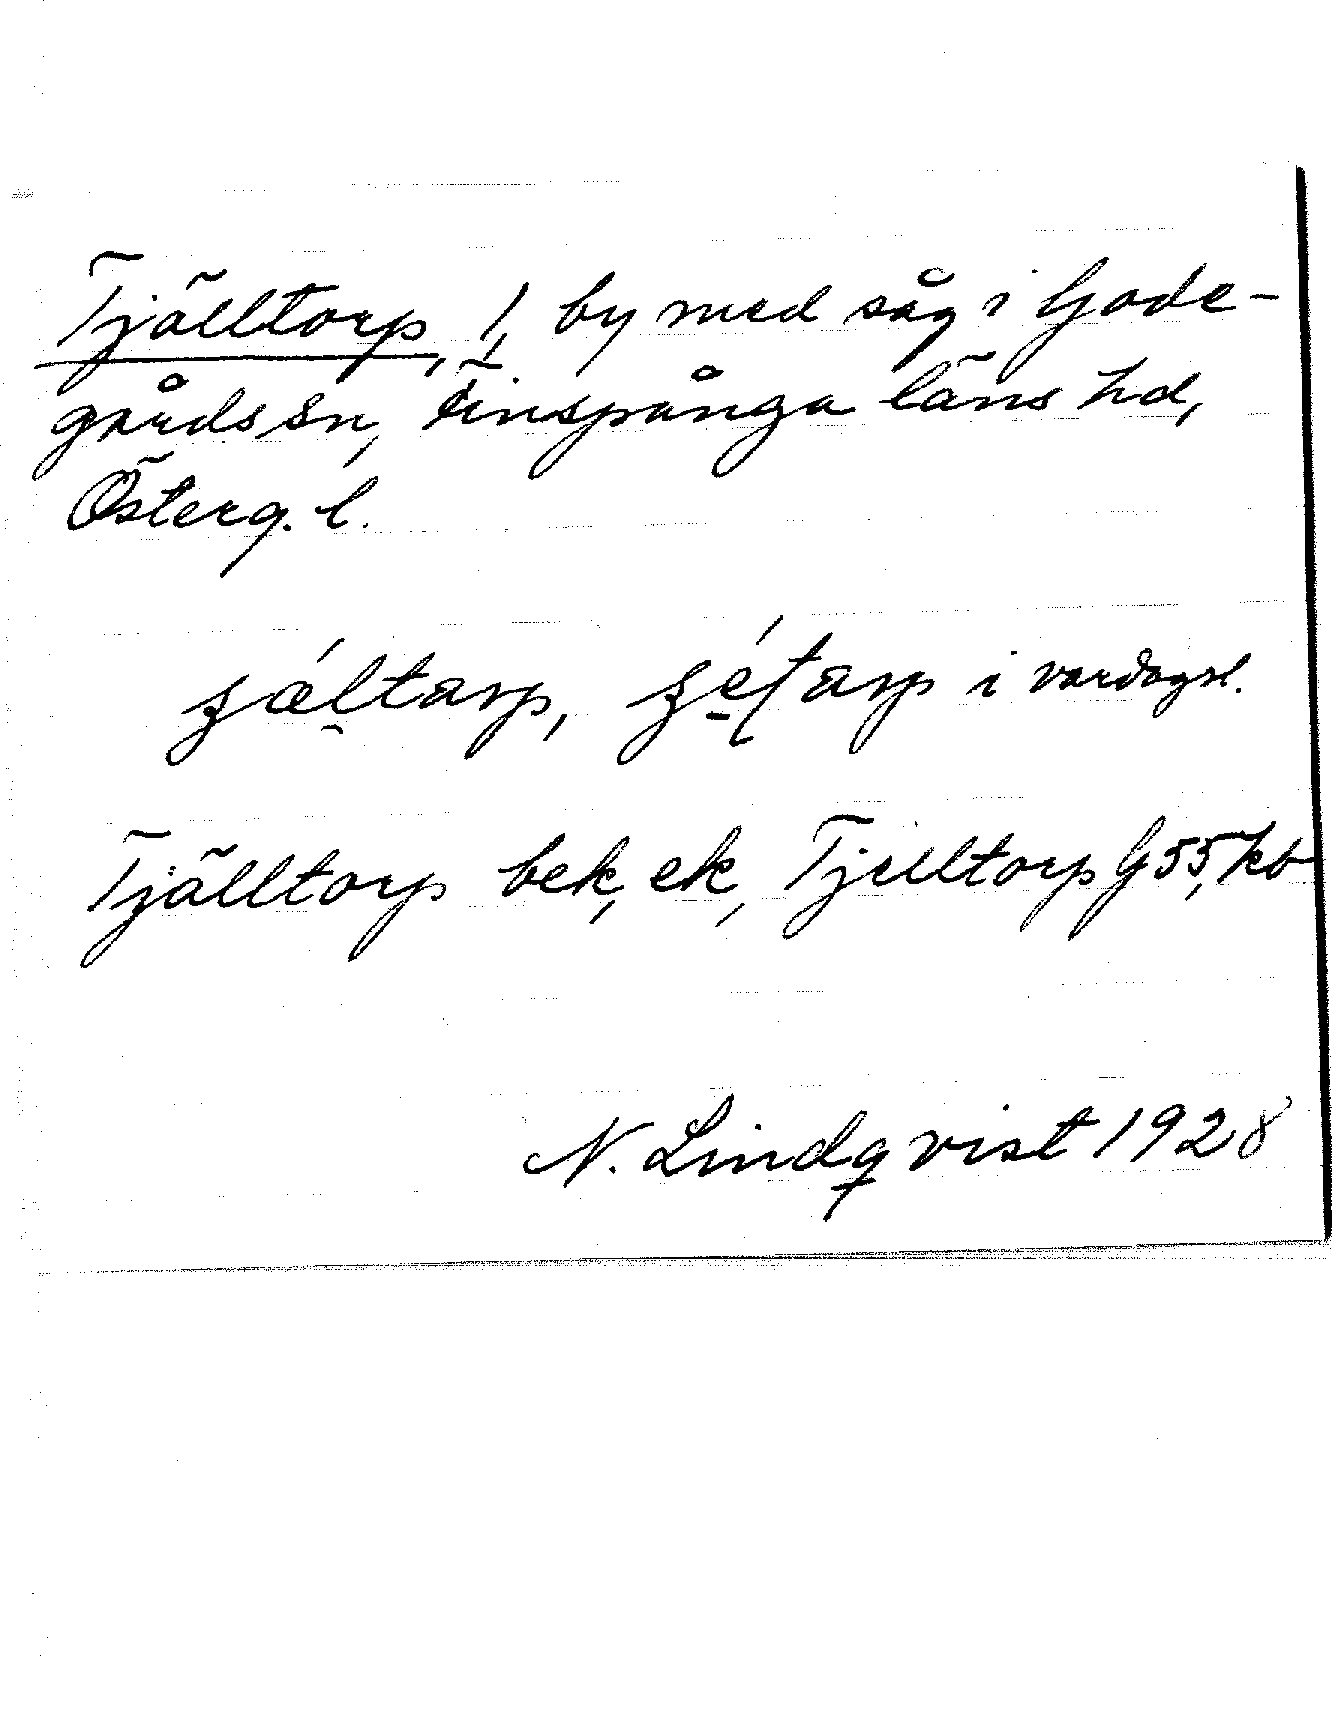 Tjälltorp, 1, by med såg i Gode-
gårds sn, Finspånga läns hd,
Österg. l.
ʒǽltarp, ʒétarp i vardagsl.
Tjälltorp bek, ek, Tjelltorp G 55, kb
N. Lindqvist 1928